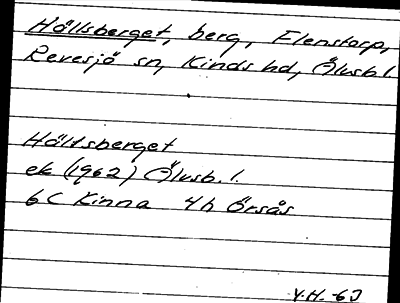 Hållsberget, berg, Elenstorp,
Revesjö sn, Kinds hd, Älvsb. l.
Hållsberget
ek (1962) Älvsb. l.
6C Kinna 4h Örsås
V.H. -63